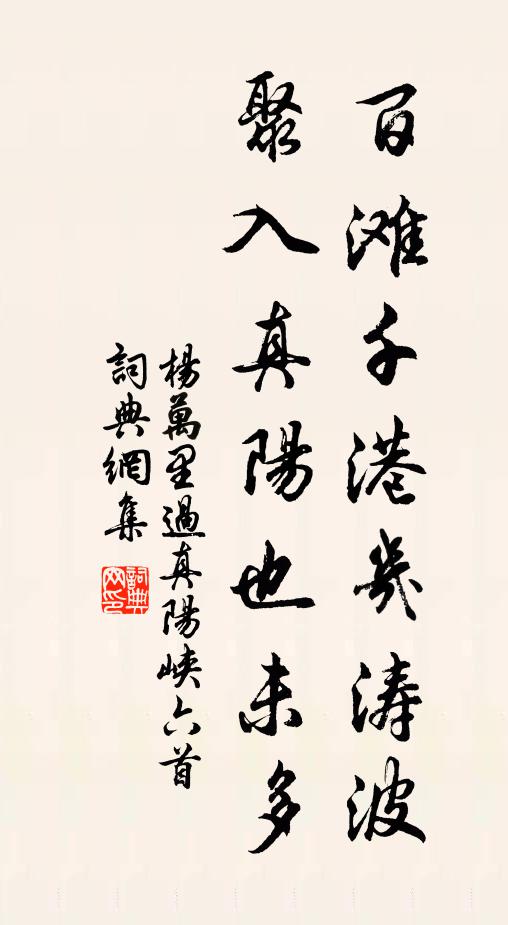 百滩千港幾涛波
聚入真陽也未多
楊萬里過真陽峽六首
詞典網集
詞典網印